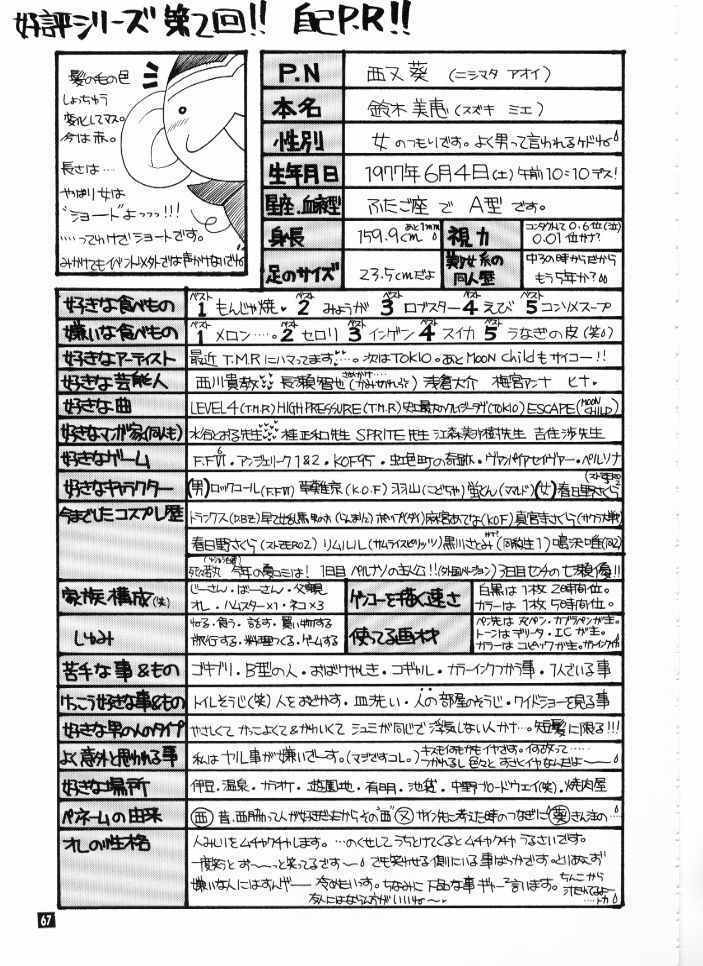 好評シリーズ第2回!! 自己P.R!!
髪の毛の色
しょっちゅう
変化してマス。
今は赤。
長さは…
やはり女は
"ショート"よっっっ!!!
……ってわけでショートです。
みかけてもイベント以外では声かけないでね
P.N 西又葵(ニシマタ アオイ)
本名 鈴木美恵(スズキ ミエ)
性別 女のつもりです。よく男って言われるケドね
生年月日 1977年6月4日(土)午前10:10デス!
星座、血液型 ふたご座で A型です。
身長 159.9cm あと1mm
視力 コンタクトして0.6位(泣)
0.01位かな?
足のサイズ 23.5cmだよ
美少女系の同人歴 中3の時からだから
もう5年か?
好きな食べもの ベスト1 もんじゃ焼 ベスト2 みょうが ベスト3 ロブスター ベスト4 えび ベスト5 コンソメスープ
嫌いな食べもの ベスト1 メロン…。ベスト2 セロリ ベスト3 インゲン ベスト4 スイカ ベスト5 うなぎの皮(笑)
好きなアーティスト 最近T.M.Rにハマってます…。次はTOKIO。あとMOON Childもサイコー!!
好きな芸能人 西川貴教 長瀬智也 浅倉大介 梅宮アンナ ヒナ
好きな曲 LEVEL4(T.M.R) HIGH PRESSURE(T.M.R) (TOKIO) ESCAPE(MOON CHILD)
好きなマンガ家(同人も) 水谷とおる先生 桂正和先生 SPRITE先生 江森美沙樹先生 吉住渉先生
好きなゲーム F.F6・アンジェリーク1&2・KOF95・虹色町の奇跡・ヴァンパイアセイヴァー・ペルソナ
好きなキャラクター (男)ロックコール(F.FVI) 草薙京(K.O.F) 羽山(こどちゃ) 蛍どん(ママレド) (女)春日野さくら(ストZERO2)
今までしたコスプレ歴 トランクス(D.B.Z) 早乙女乱馬 ポップ(ダイ) 麻宮アテナ(KOF) 真宮寺さくら(サクラ大戦)
春日野さくら(ストZERO2) リムルル(サムライスピリッツ) 黒川さとみ(同級生1) 鳴沢唯(同2)
今年の夏コミは! 1日目ペルソナの主人公!! 3日目センチの七瀬優!!
家族構成(笑) じーさん・ばーさん・父・母親
オレ・ハムスター×1・ネコ×3
ゲンコーを描く速さ 白黒は1枚2時間位。
カラーは1枚5時間位。
しゅみ ねる・食う・話す・買い物する
旅行する・料理つくる・ゲームする
使ってる画材 ペン先は丸ペン・カブラペンが主。
トーンはデリータ・ICが主。
カラーはコピックが主。カラーインクも
苦手な事&もの ゴキブリ・B型の人・おばけやしき・コギャル・カラーインクつかう事・1人でいる事
けっこう好きな事&もの トイレそうじ(笑) 人をおどかす・皿洗い・人の部屋のそうじ・ワイドショーを見る事
好きな男の人のタイプ やさしくて かっこよくて&かわいくて シュミが同じで浮気しない人かナ…。短髪に限る!!!
よく意外と思われる事 私はヤル事が嫌いでーす。(マジですコレ。)
好きな場所 伊豆・温泉・カラオケ・遊園地・有明・池袋・中野ブロードウェイ(笑)・焼肉屋
ペンネームの由来 (西) 昔、西脇って人が好きだったからその"西" (又) サイン先に考えた時のつなぎに (葵)
オレの性格 人みしりをムチャクチャします。…のくせしてうちとけてくるとムチャクチャうるさいです。
一度笑うとずーーっと笑ってるです～ でも笑わせる側にいる事ばっかです。とりあえず
嫌いな人にはすんげー 冷めたいス。ちなみに下品な事ギャー²言います。
友人にはならん方がいいね～
67